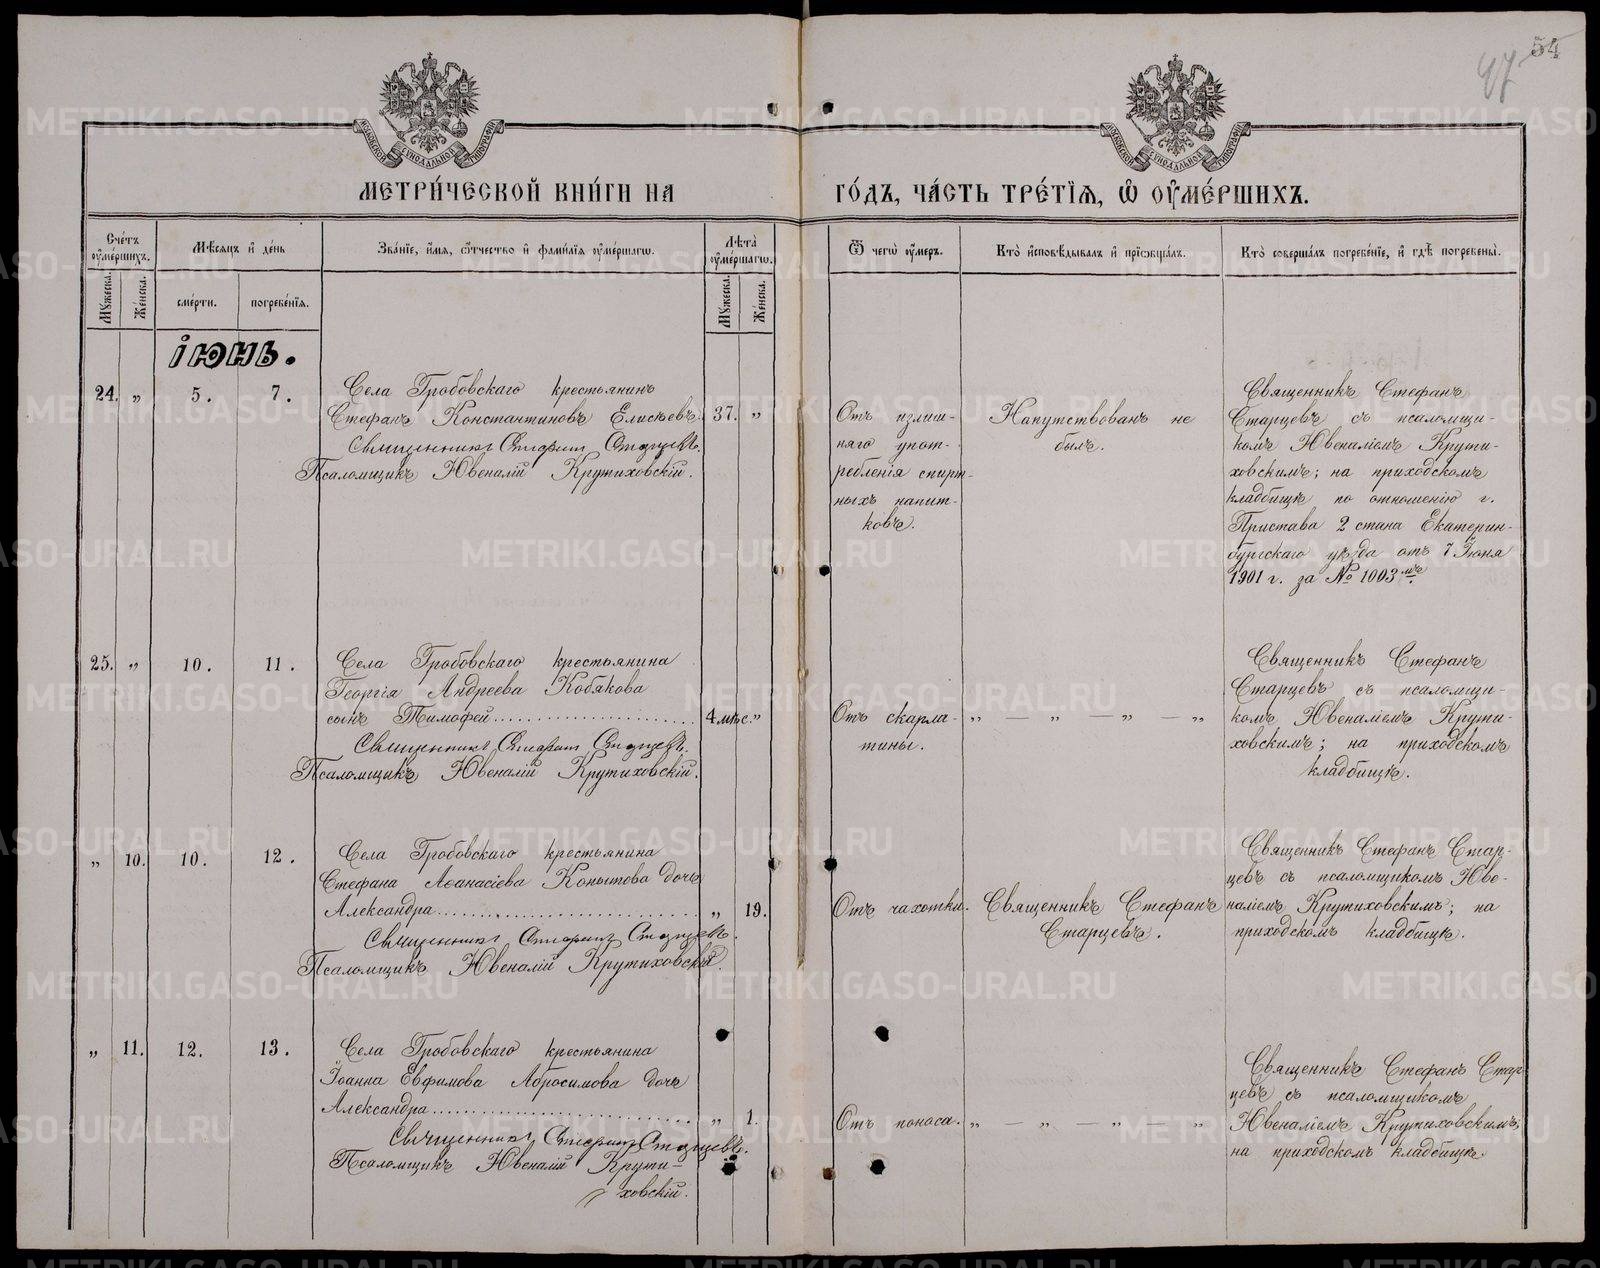 54
47
МОСКОВСКОЙ СѴНОДАЛЬНОЙ ТИПОГРАФІИ
МОСКОВСКОЙ СѴНОДАЛЬНОЙ ТИПОГРАФІИ
МЕТРИ́ЧЕСКОЙ КНИ́ГИ НА ГО́ДЪ, ЧА́СТЬ ТРЕ́ТІЯ, Ѡ҆ ОУ҆МЕ́РШИХЪ.
Сче́тъ оу҆ме́ршихъ.
Мꙋжеска.
Же́нска.
Мѣ́сяцъ и҆ де́нь
сме́рти.
погребе́нїѧ.
Зва́нїе, и҆́мѧ, ѻ҆́тчество и҆ фами́лїѧ оу҆ме́ршагѡ.
Лѣта̀ оу҆ме́ршагѡ.
Мꙋжеска.
Же́нска.
Ѿ чегѡ̀ оу҆́меръ.
Кто̀ и҆сповѣ́дывалъ и҆ прїѡбща́лъ.
Кто̀ соверша́лъ погребе́нїе, и҆ гдѣ̀ погребены̀.
ІЮНЬ.
24. „ 5. 7.
Села Гробовскаго крестьянинъ
Стефанъ Константиновъ Елисѣевъ. 37. „
Священникъ Стефанъ Старцевъ.
Псаломщикъ Ювеналій Крутиховскій.
Отъ излиш-
няго упот-
ребленія спирт-
ныхъ напит-
ковъ.
Напутствованъ не
былъ.
Священникъ Стефанъ
Старцевъ съ псаломщи-
комъ Ювеналіемъ Крути-
ховскимъ; на приходскомъ
кладбищѣ по отношенію г.
Пристава 2 стана Екатерин-
бургскаго уѣзда отъ 7 Іюня
1901 г. за № 1003мъ.
25. „ 10. 11.
Села Гробовскаго крестьянина
Георгія Андреева Кобякова
сынъ Тимофей........................ 4 мѣс. „
Священникъ Стефанъ Старцевъ.
Псаломщикъ Ювеналій Крутиховскій.
Отъ скарла-
тины.
„ — „ — „ — „
Священникъ Стефанъ
Старцевъ съ псаломщи-
комъ Ювеналіемъ Крути-
ховскимъ; на приходскомъ
кладбищѣ.
„ 10. 10. 12.
Села Гробовскаго крестьянина
Стефана Аѳанасіева Копытова дочь
Александра.............................. „ 19.
Священникъ Стефанъ Старцевъ.
Псаломщикъ Ювеналій Крутиховскій.
Отъ чахотки.
Священникъ Стефанъ
Старцевъ.
Священникъ Стефанъ Стар-
цевъ съ псаломщикомъ Юве-
наліемъ Крутиховскимъ; на
приходскомъ кладбищѣ.
„ 11. 12. 13.
Села Гробовскаго крестьянина
Іоанна Евфимова Абросимова дочь
Александра.............................. „ 1.
Священникъ Стефанъ Старцевъ.
Псаломщикъ Ювеналій Крути-
ховскій.
Отъ поноса.
„ — „ — „ — „
Священникъ Стефанъ Стар-
цевъ съ псаломщикомъ
Ювеналіемъ Крутиховскимъ;
на приходскомъ кладбищѣ.
METRIKI.GASO-URAL.RU